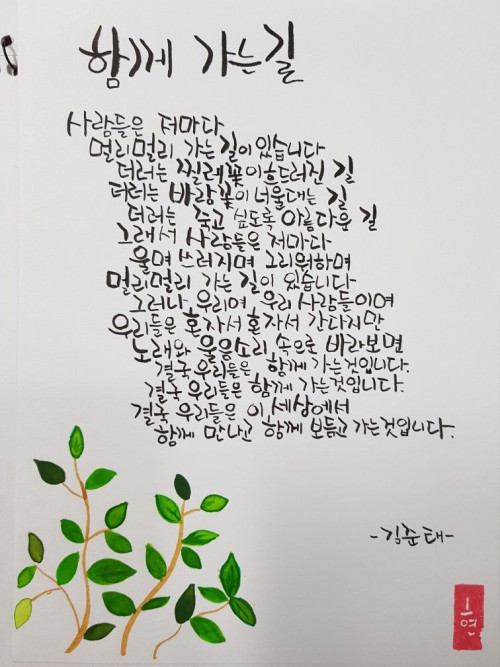 함께 가는 길
사람들은 저마다
멀리멀리 가는 길이 있습니다
더러는 찔레꽃이 흐드러진 길
더러는 바람꽃이 너울대는 길
더러는 죽고 싶도록 아름다운 길
그래서 사람들은 저마다
울며 쓰러지며 그리워하며
멀리멀리 가는 길이 있습니다
그러나 우리여 우리 사람들이여
우리들은 혼자서 혼자서 간다지만
노래와 울음소리 속으로 바라보면
결국 우리들은 함께 가는 것입니다.
결국 우리들은 함께 가는 것입니다.
결국 우리들은 이 세상에서
함께 만나고 함께 보듬고 가는 것입니다.
-김준태-
연